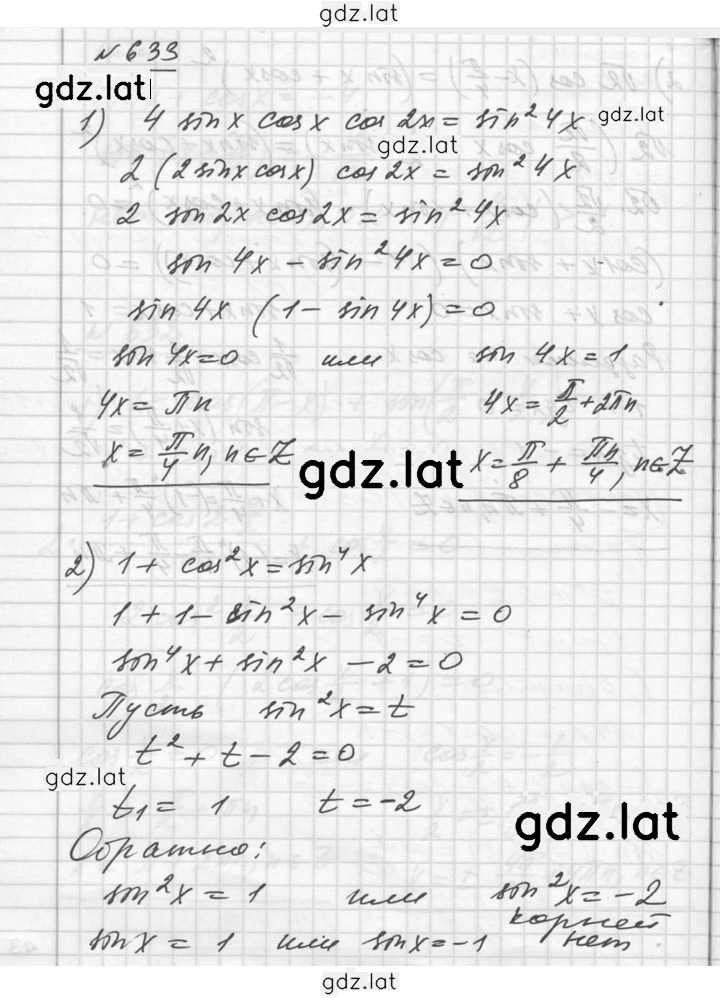 gdz.lat
№ 633
gdz.lat
1) 4 sin x cos x cos 2x = sin² 4x
gdz.lat
2 (2 sin x cos x) cos 2x = sin² 4x
2 sin 2x cos 2x = sin² 4x
sin 4x − sin² 4x = 0
sin 4x (1 − sin 4x) = 0
sin 4x = 0 или sin 4x = 1
4x = πn 4x = π/2 + 2πn
x = π/4 n, n ∈ Z x = π/8 + πn/4, n ∈ Z
gdz.lat
2) 1 + cos² x = sin⁴ x
1 + 1 − sin² x − sin⁴ x = 0
sin⁴ x + sin² x − 2 = 0
Пусть sin² x = t
t² + t − 2 = 0
gdz.lat
t₁ = 1 t = −2
gdz.lat
Обратно:
sin² x = 1 или sin² x = −2
корней
sin x = 1 или sin x = −1 нет
gdz.lat